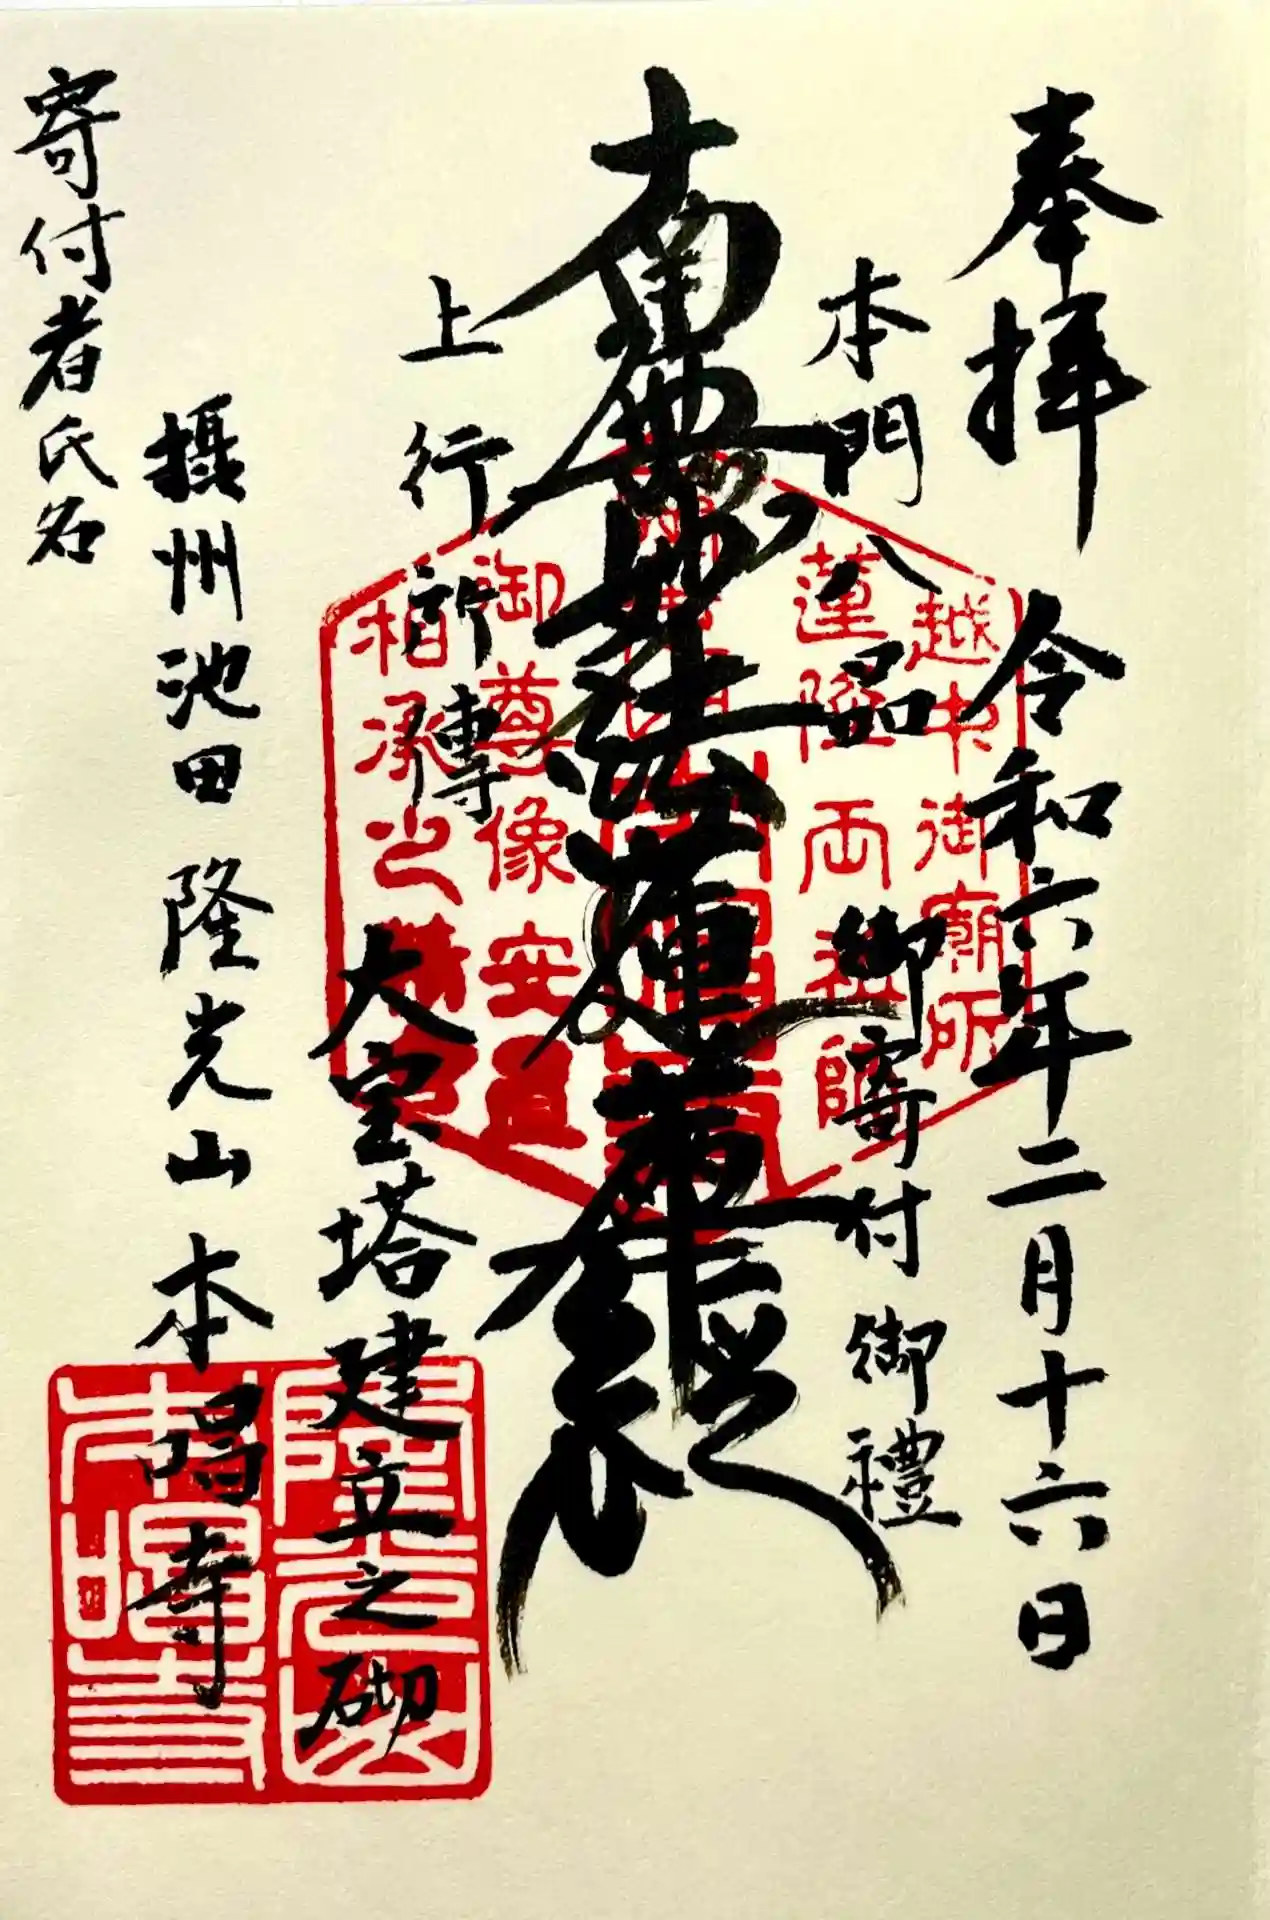 奉拝 令和六年二月十六日
本門八品 御寄付御禮
南無妙法蓮華経
上行所傳 大宝塔建立之砌
摂州池田 隆光山 本昌寺
寄付者氏名
越中御廟所
蓮隆両祖師
御尊像安置
相承之
隆光山
本唱寺